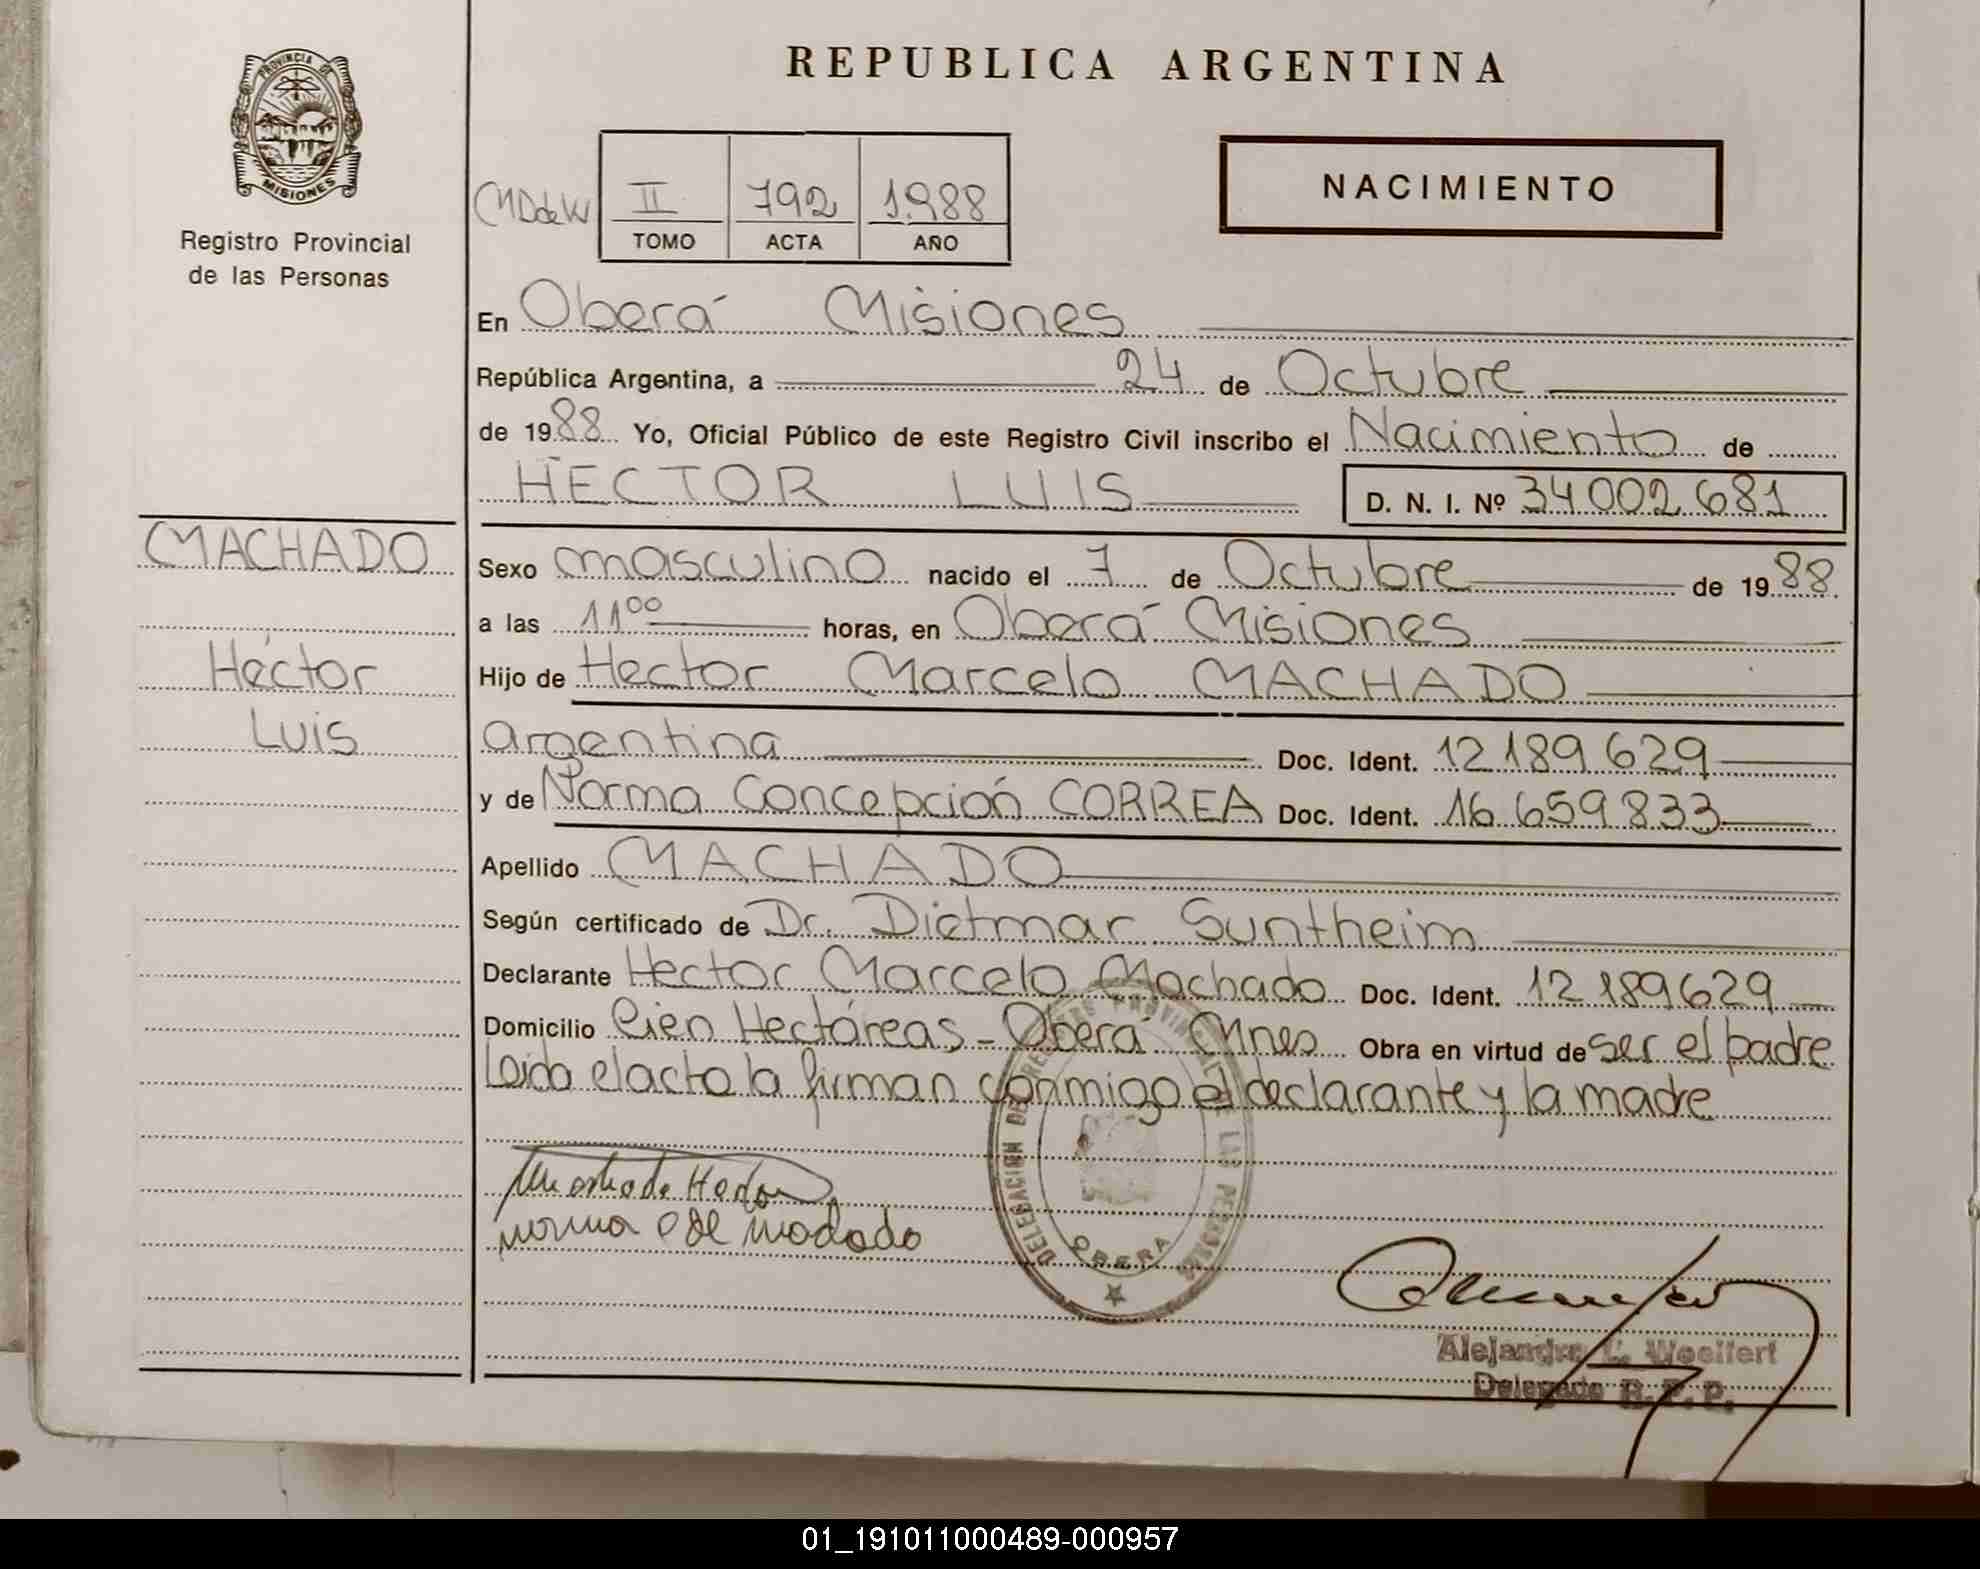 REPUBLICA ARGENTINA
PROVINCIA DE
MISIONES
Registro Provincial
de las Personas
II 792 1.988
TOMO ACTA AÑO
NACIMIENTO
En Oberá Misiones
República Argentina, a 24 de Octubre
de 1988 Yo, Oficial Público de este Registro Civil inscribo el Nacimiento de
HECTOR LUIS D. N. I. Nº 34 002 681
MACHADO
Héctor
Luis
Sexo masculino nacido el 7 de Octubre de 1988
a las 11 00 horas, en Oberá Misiones
Hijo de Hector Marcelo MACHADO
argentina Doc. Ident. 12 189 629
y de Norma Concepción CORREA Doc. Ident. 16 659 833
Apellido MACHADO
Según certificado de Dr. Dietmar Suntheim
Declarante Hector Marcelo Machado Doc. Ident. 12 189629
Domicilio Cien Hectáreas - Oberá Mnes Obra en virtud de ser el padre
Leida el acto la firman conmigo el declarante y la madre
DELEGACION DEL REGISTRO PROVINCIAL DE LAS PERSONAS
OBERA
Alejandro L. Woelfert
Delegado R. P. P.
01_191011000489-000957